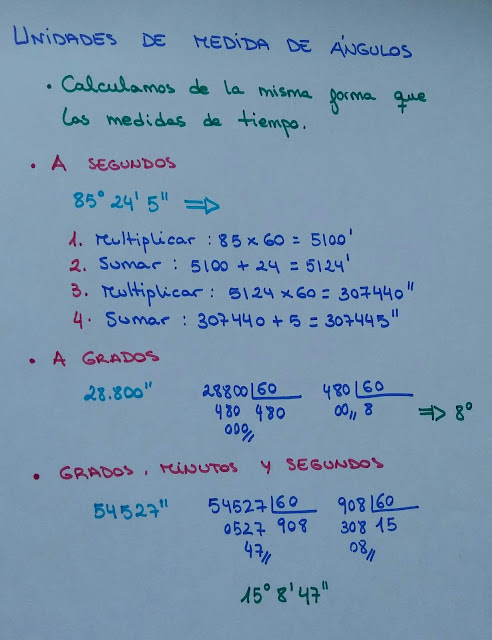 UNIDADES DE MEDIDA DE ÁNGULOS
• Calculamos de la misma forma que
las medidas de tiempo.
• A SEGUNDOS
85° 24' 5" ⇒
1. Multiplicar : 85 x 60 = 5100'
2. Sumar : 5100 + 24 = 5124'
3. Multiplicar : 5124 x 60 = 307440"
4. Sumar : 307440 + 5 = 307445"
• A GRADOS
28.800" 28800 | 60 480 | 60
480 480 00,, 8 ⇒ 8°
000,,
• GRADOS, MINUTOS Y SEGUNDOS
54527" 54527 | 60 908 | 60
0527 908 308 15
47,, 08,,
15° 8' 47"